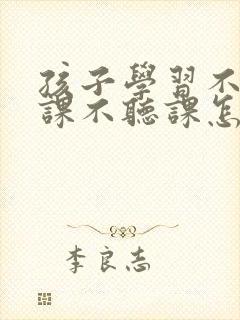 孩子學習不
課不聽課怎
李良志